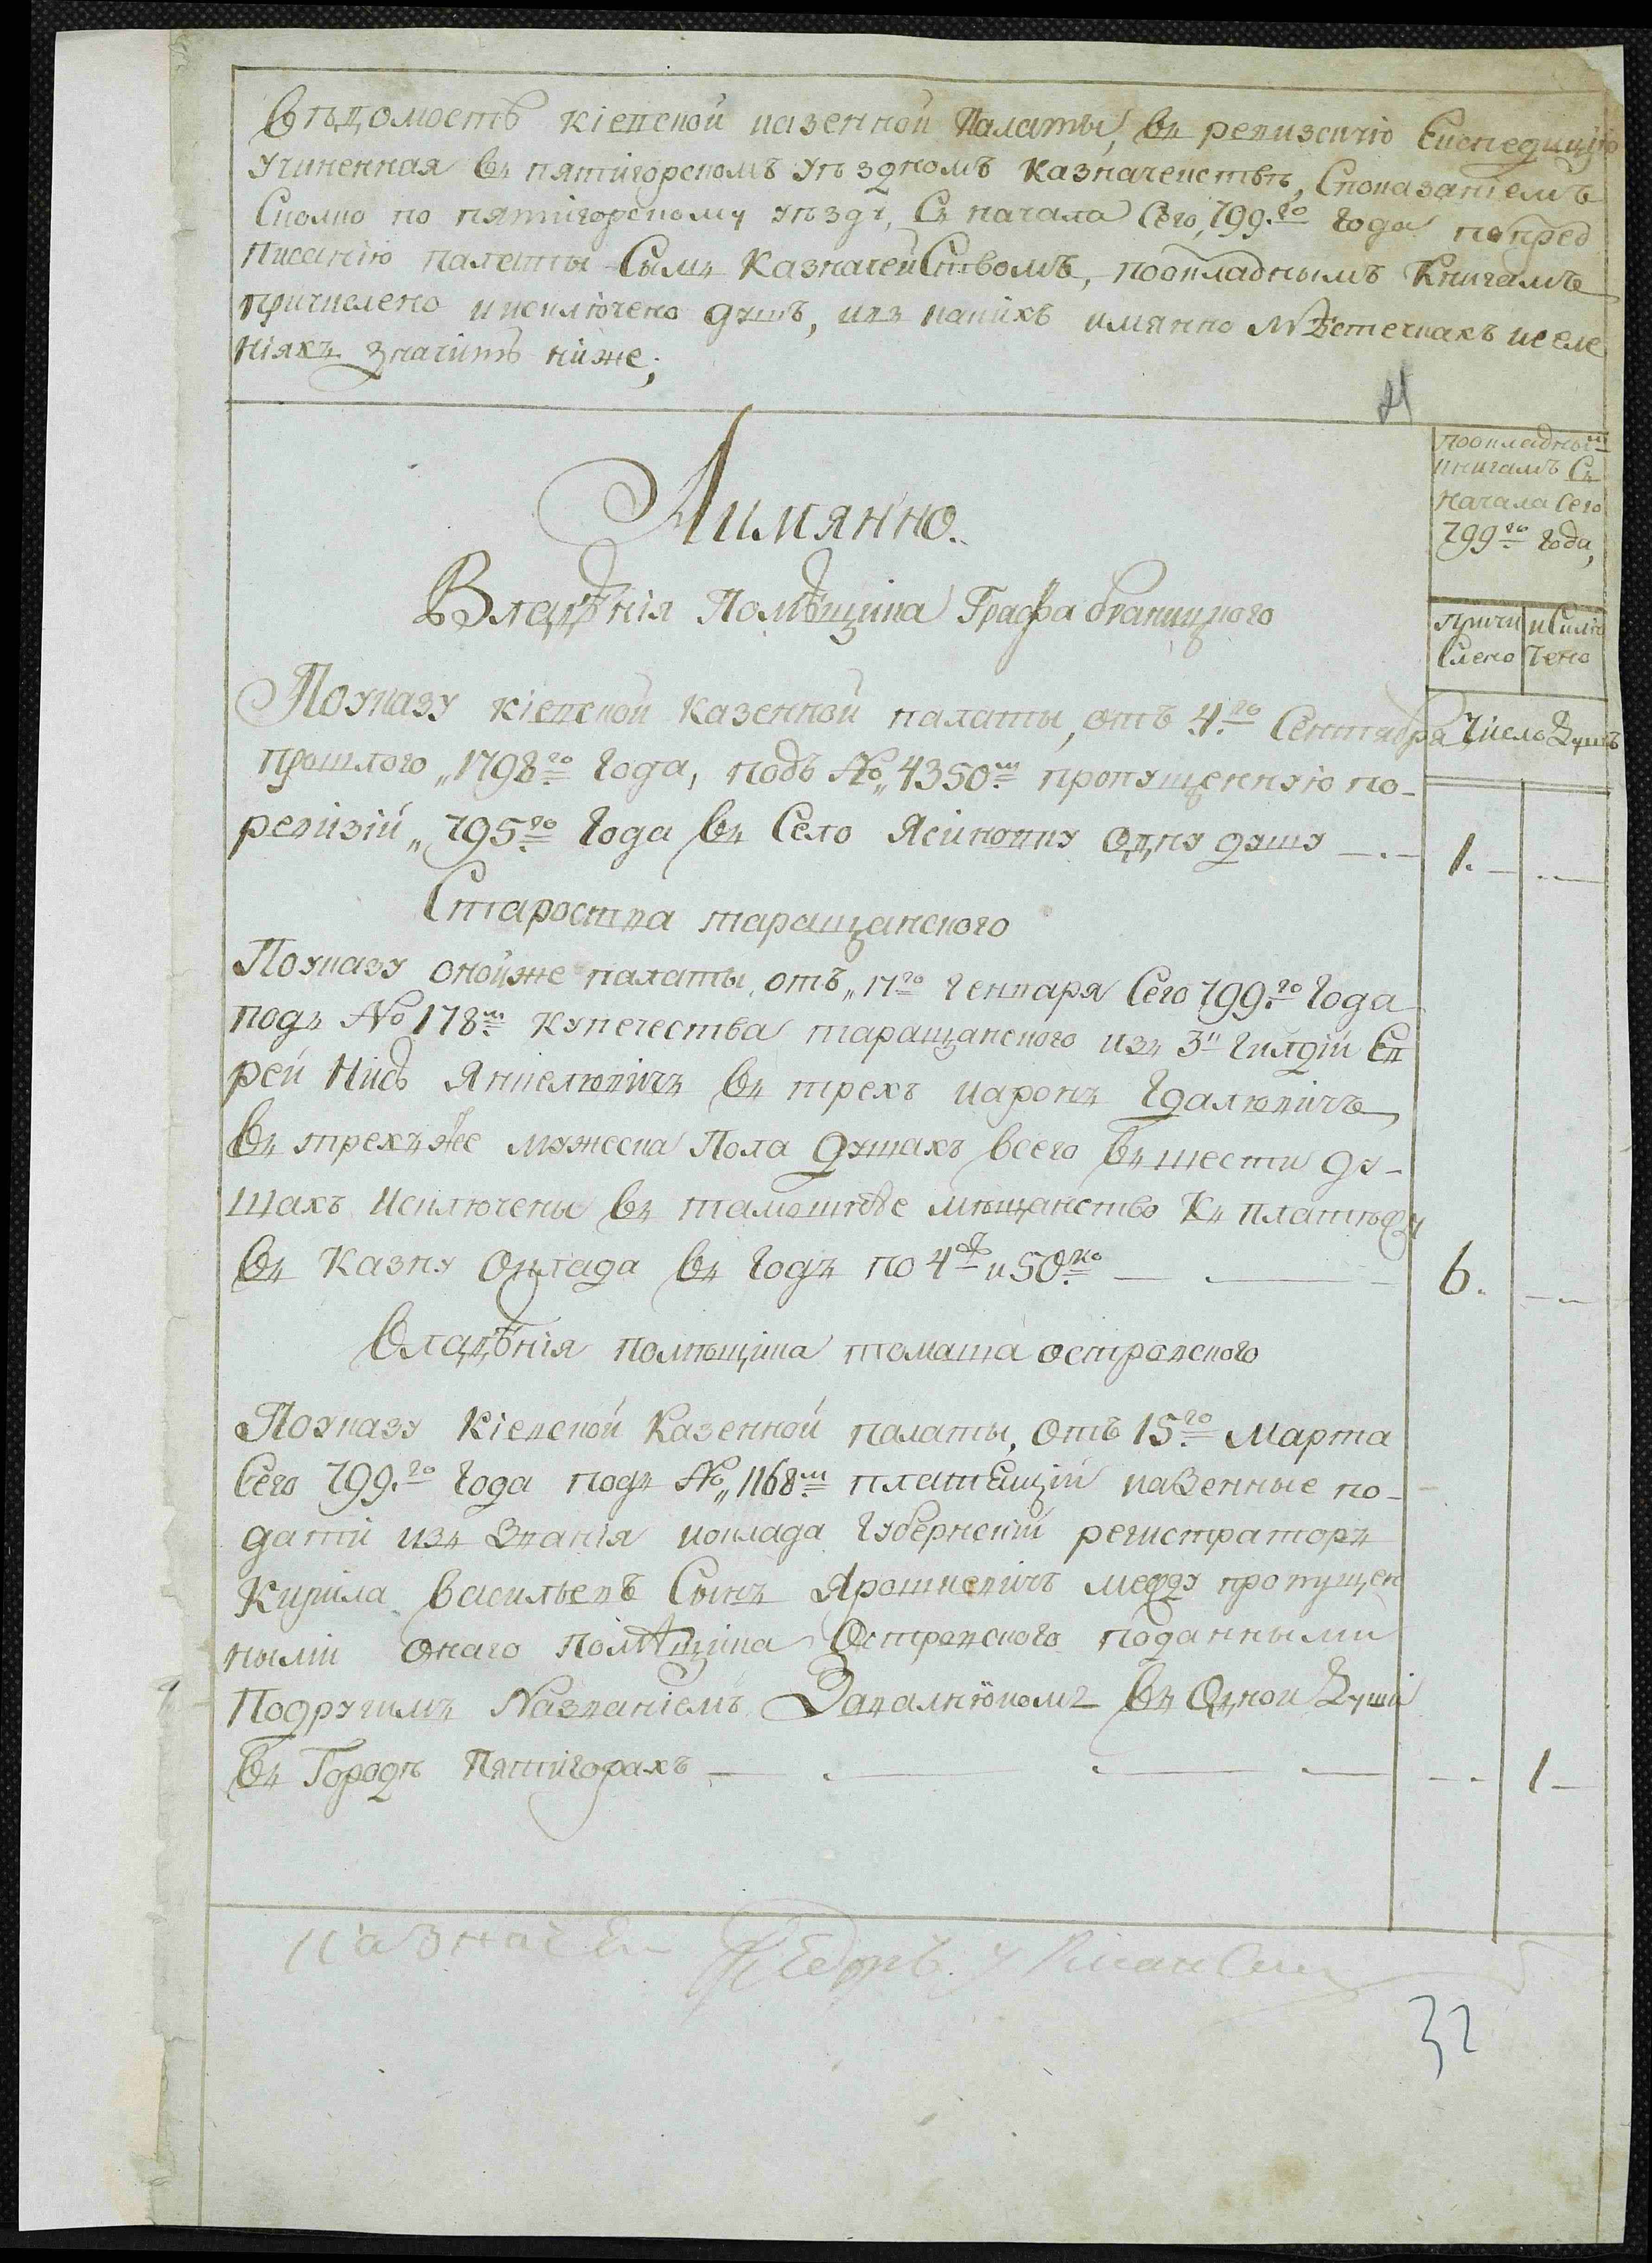 Вѣдомость Кіевской казенной Палаты, въ ревизскую Експедицію
учиненная въ пятигорскомъ уѣздномъ Казначействѣ, Споказаніемъ
Сколко по пятигорскому уѣзду, Съ начала Сего, 799.го Года попред
писанію палаты Симъ Казначействомъ, поокладнымъ Книгамъ
причислено иисключено душъ, ивъ какихъ имянно Мѣстечкахъ иселе
ніяхъ значитъ ниже;
поокладным
книгамъ Съ
начала Сего
799го Года,
Аимянно.
Владѣнія Помѣщика Графа браницкого
причи
Слено
иСклю
чено
Число Душъ
Поуказу кіевской Казенной палаты, отъ 4.го Сентября
прошлого „1798го Года, подъ №„4350м пропущенную по-
ревизіи „795го Года въ Село Ясиновку одну душу 1.
Староства таращанского
Поуказу онойже палаты отъ „17го Генваря Сего 799.го Года
подъ № 178м купечества таращанского изъ 3й Гилдіи Ев
рей въ трехъ
въ трехъже мужеска Пола душахъ всего въ шести ду-
шахъ исключены въ тамошнѣе мѣщанство Къ платежу
въ Казну Оклада въ Годъ по 4р и 50ко 6.
Владѣнія помѣщика томаша островского
Поуказу Кіевской Казенной палаты, Отъ 15го Марта
Сего 799.го Года подъ №„1168м платящій казенные по-
дати изъ Званія иоклада Губернскій регистраторъ
Кирила Васильевъ Сынъ Ярошкевичъ между пропущен
ными Онаго помѣщика Островского поданными
Подругимъ Названіемъ въ Одной Души
въ Городѣ Пятигорахъ 1
казначей Федоръ
32